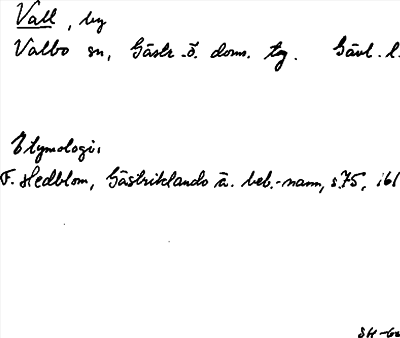 Vall, by
Valbo sn, Gästr.-ö. doms. tg. Gävl. l.
Etymologi:
F. Hedblom, Gästriklands ä. beb.-namn, s.75, 161
SH-60